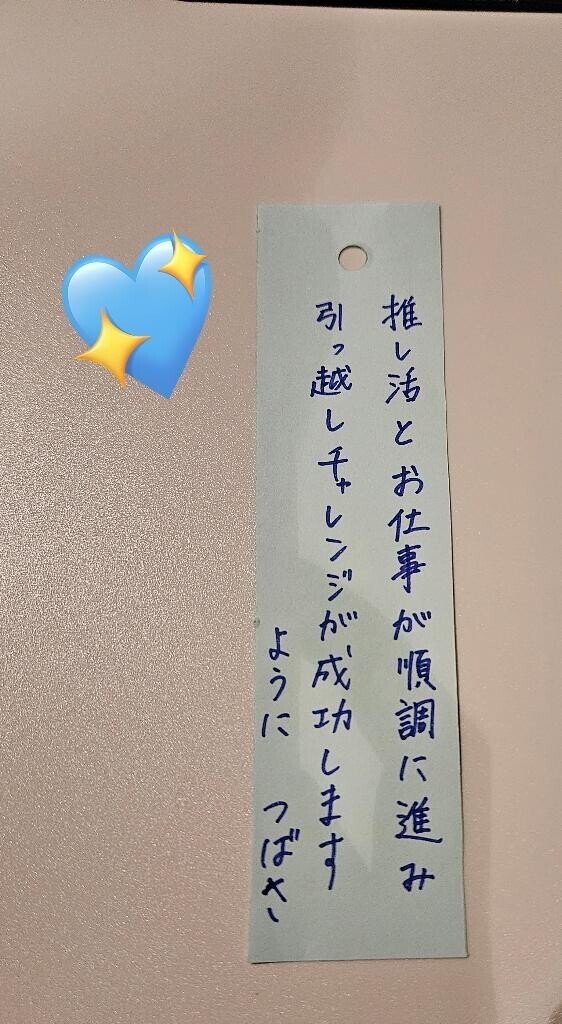 推し活とお仕事が順調に進み
引っ越しチャレンジが成功します
ように　つばさ